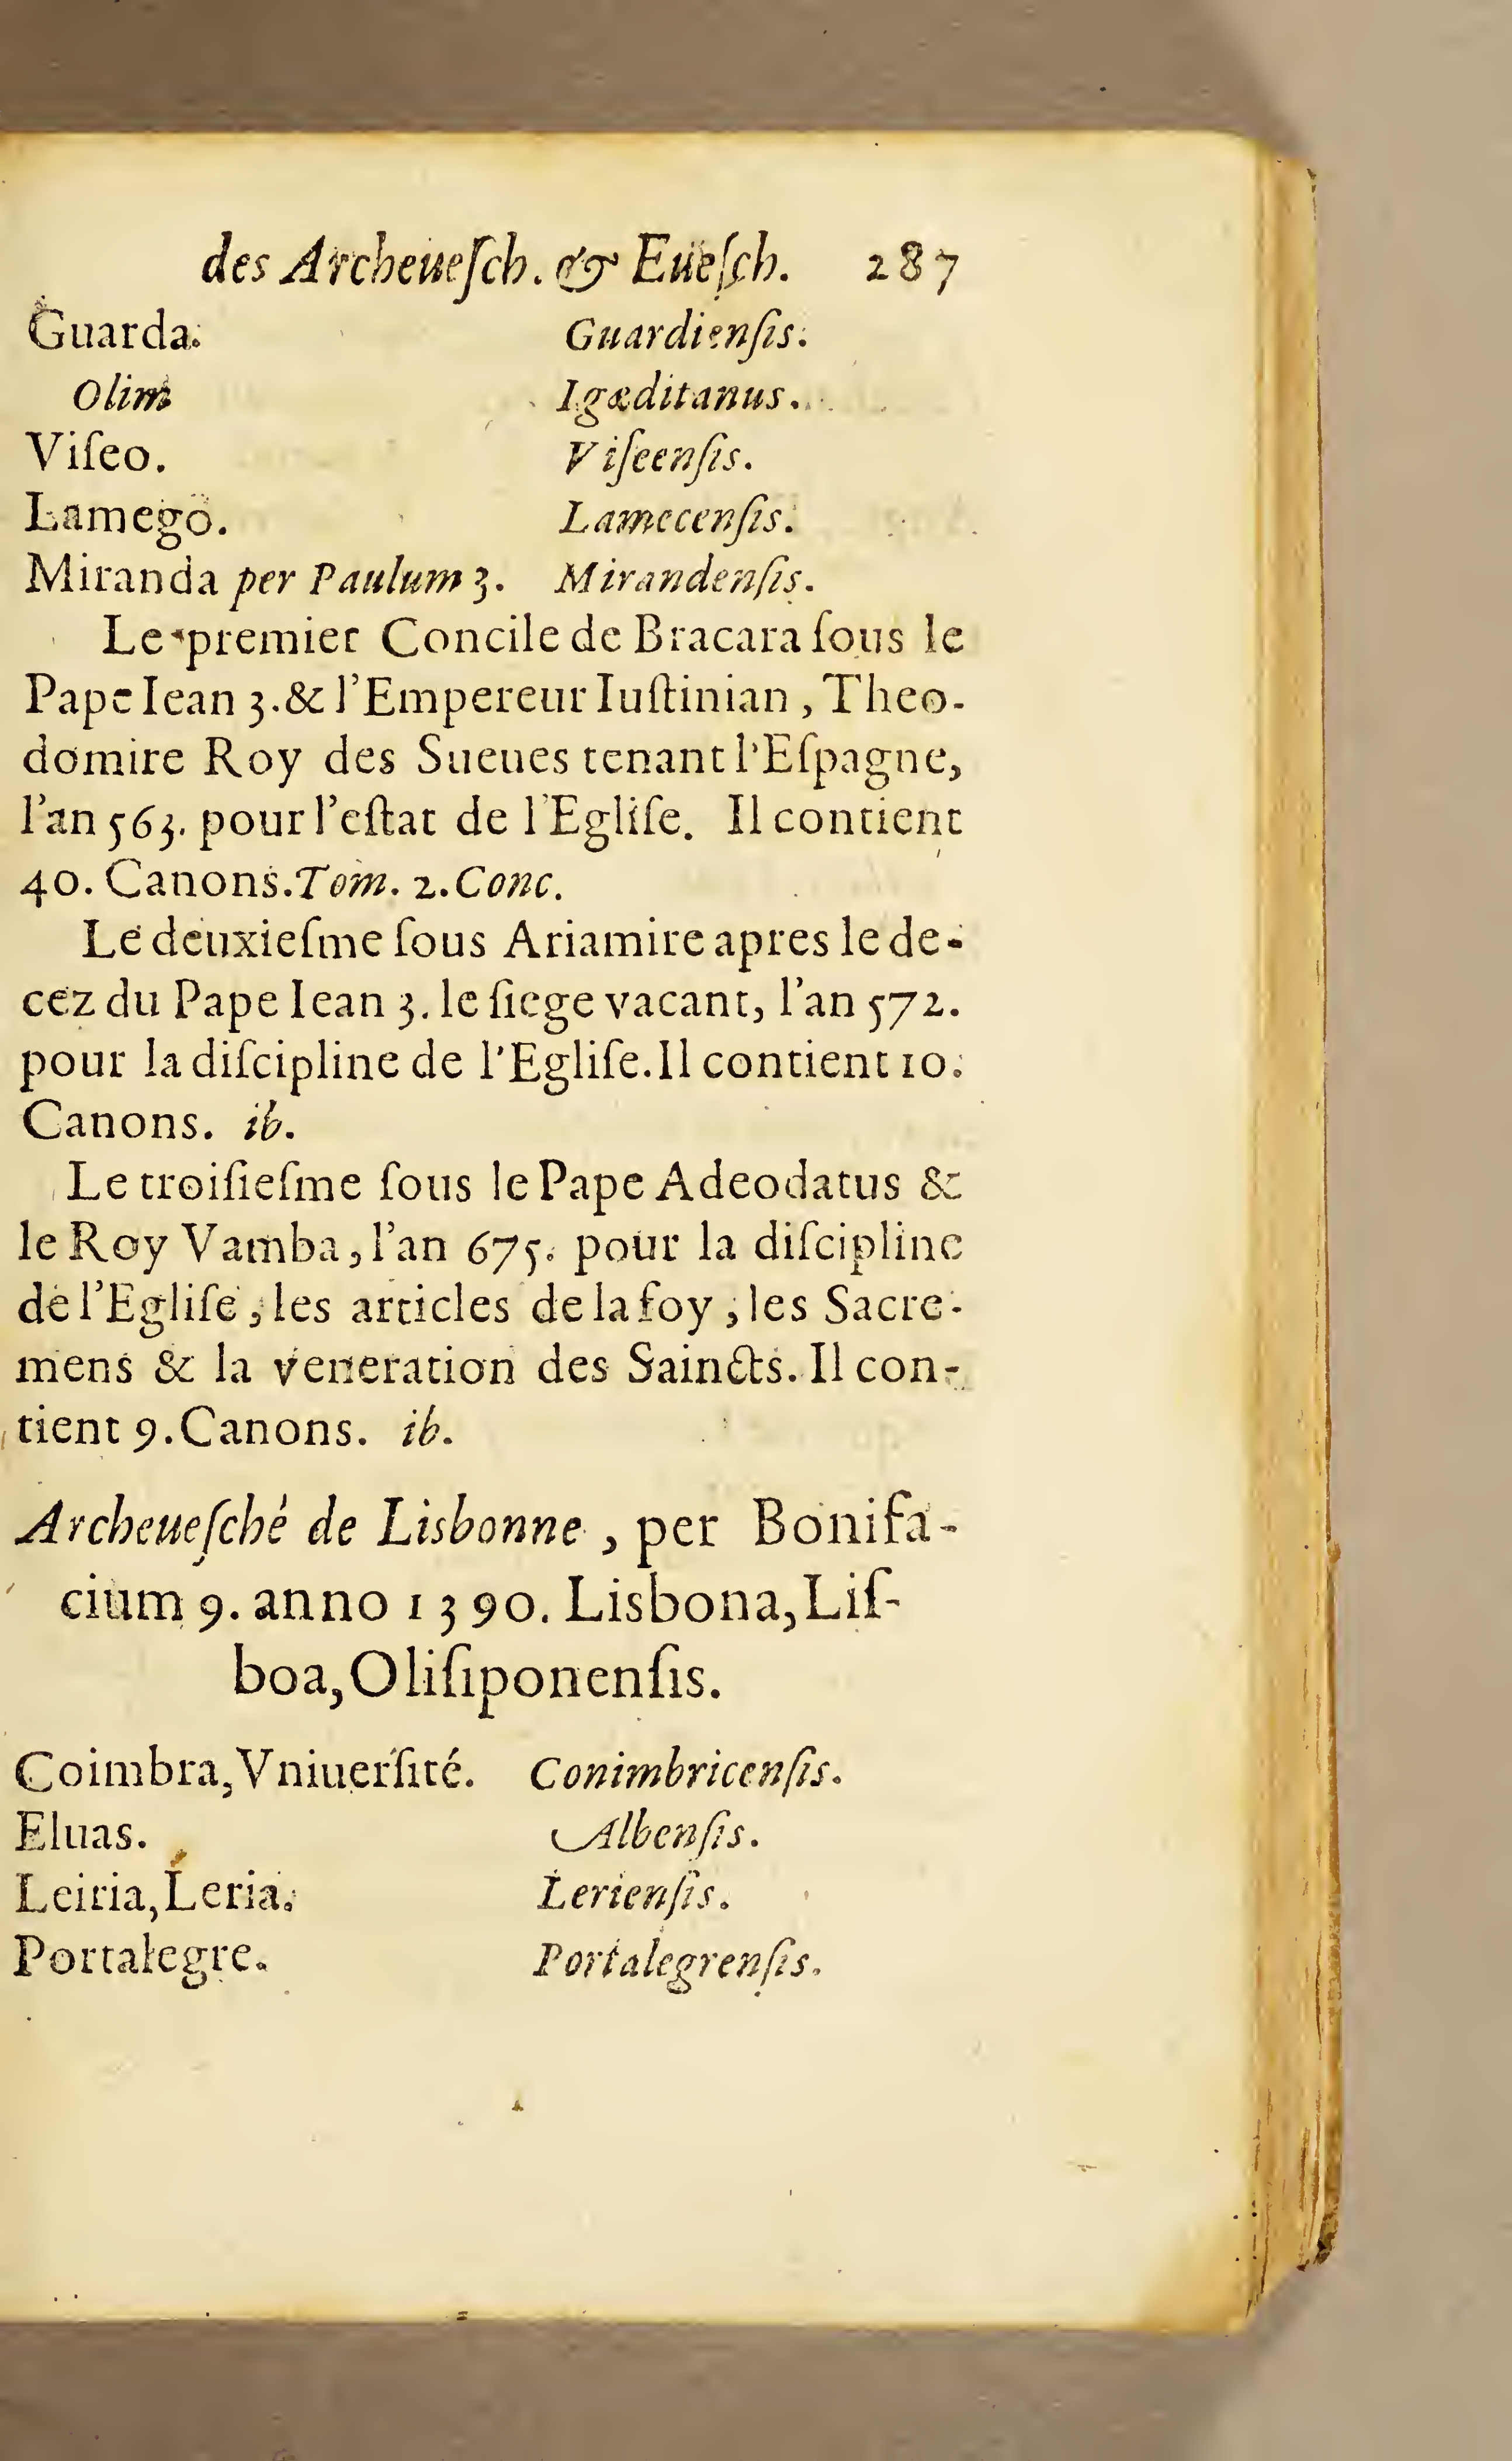 des Archeueſch. & Eueſch. 287
Guarda. Guardienſis.
Olim Igæditanus.
Viſeo. Viſeenſis.
Lamego. Lamecenſis.
Miranda per Paulum 3. Mirandenſis.
Le premier Concile de Bracara ſous le
Pape Iean 3. & l'Empereur Iuſtinian, Theo-
domire Roy des Sueues tenant l'Eſpagne,
l'an 563. pour l'eſtat de l'Egliſe. Il contient
40. Canons. Tom. 2. Conc.
Le deuxieſme ſous Ariamire apres le de-
cez du Pape Iean 3. le ſiege vacant, l'an 572.
pour la diſcipline de l'Egliſe. Il contient 10.
Canons. ib.
Le troiſieſme ſous le Pape Adeodatus &
le Roy Vamba, l'an 675. pour la diſcipline
de l'Egliſe, les articles de la foy, les Sacre-
mens & la veneration des Saincts. Il con-
tient 9. Canons. ib.
Archeueſché de Lisbonne, per Bonifa-
cium 9. anno 1390. Lisbona, Liſ-
boa, Oliſiponenſis.
Coimbra, Vniuerſité. Conimbricenſis.
Eluas. Albenſis.
Leiria, Leria. Lerienſis.
Portalegre. Portalegrenſis.